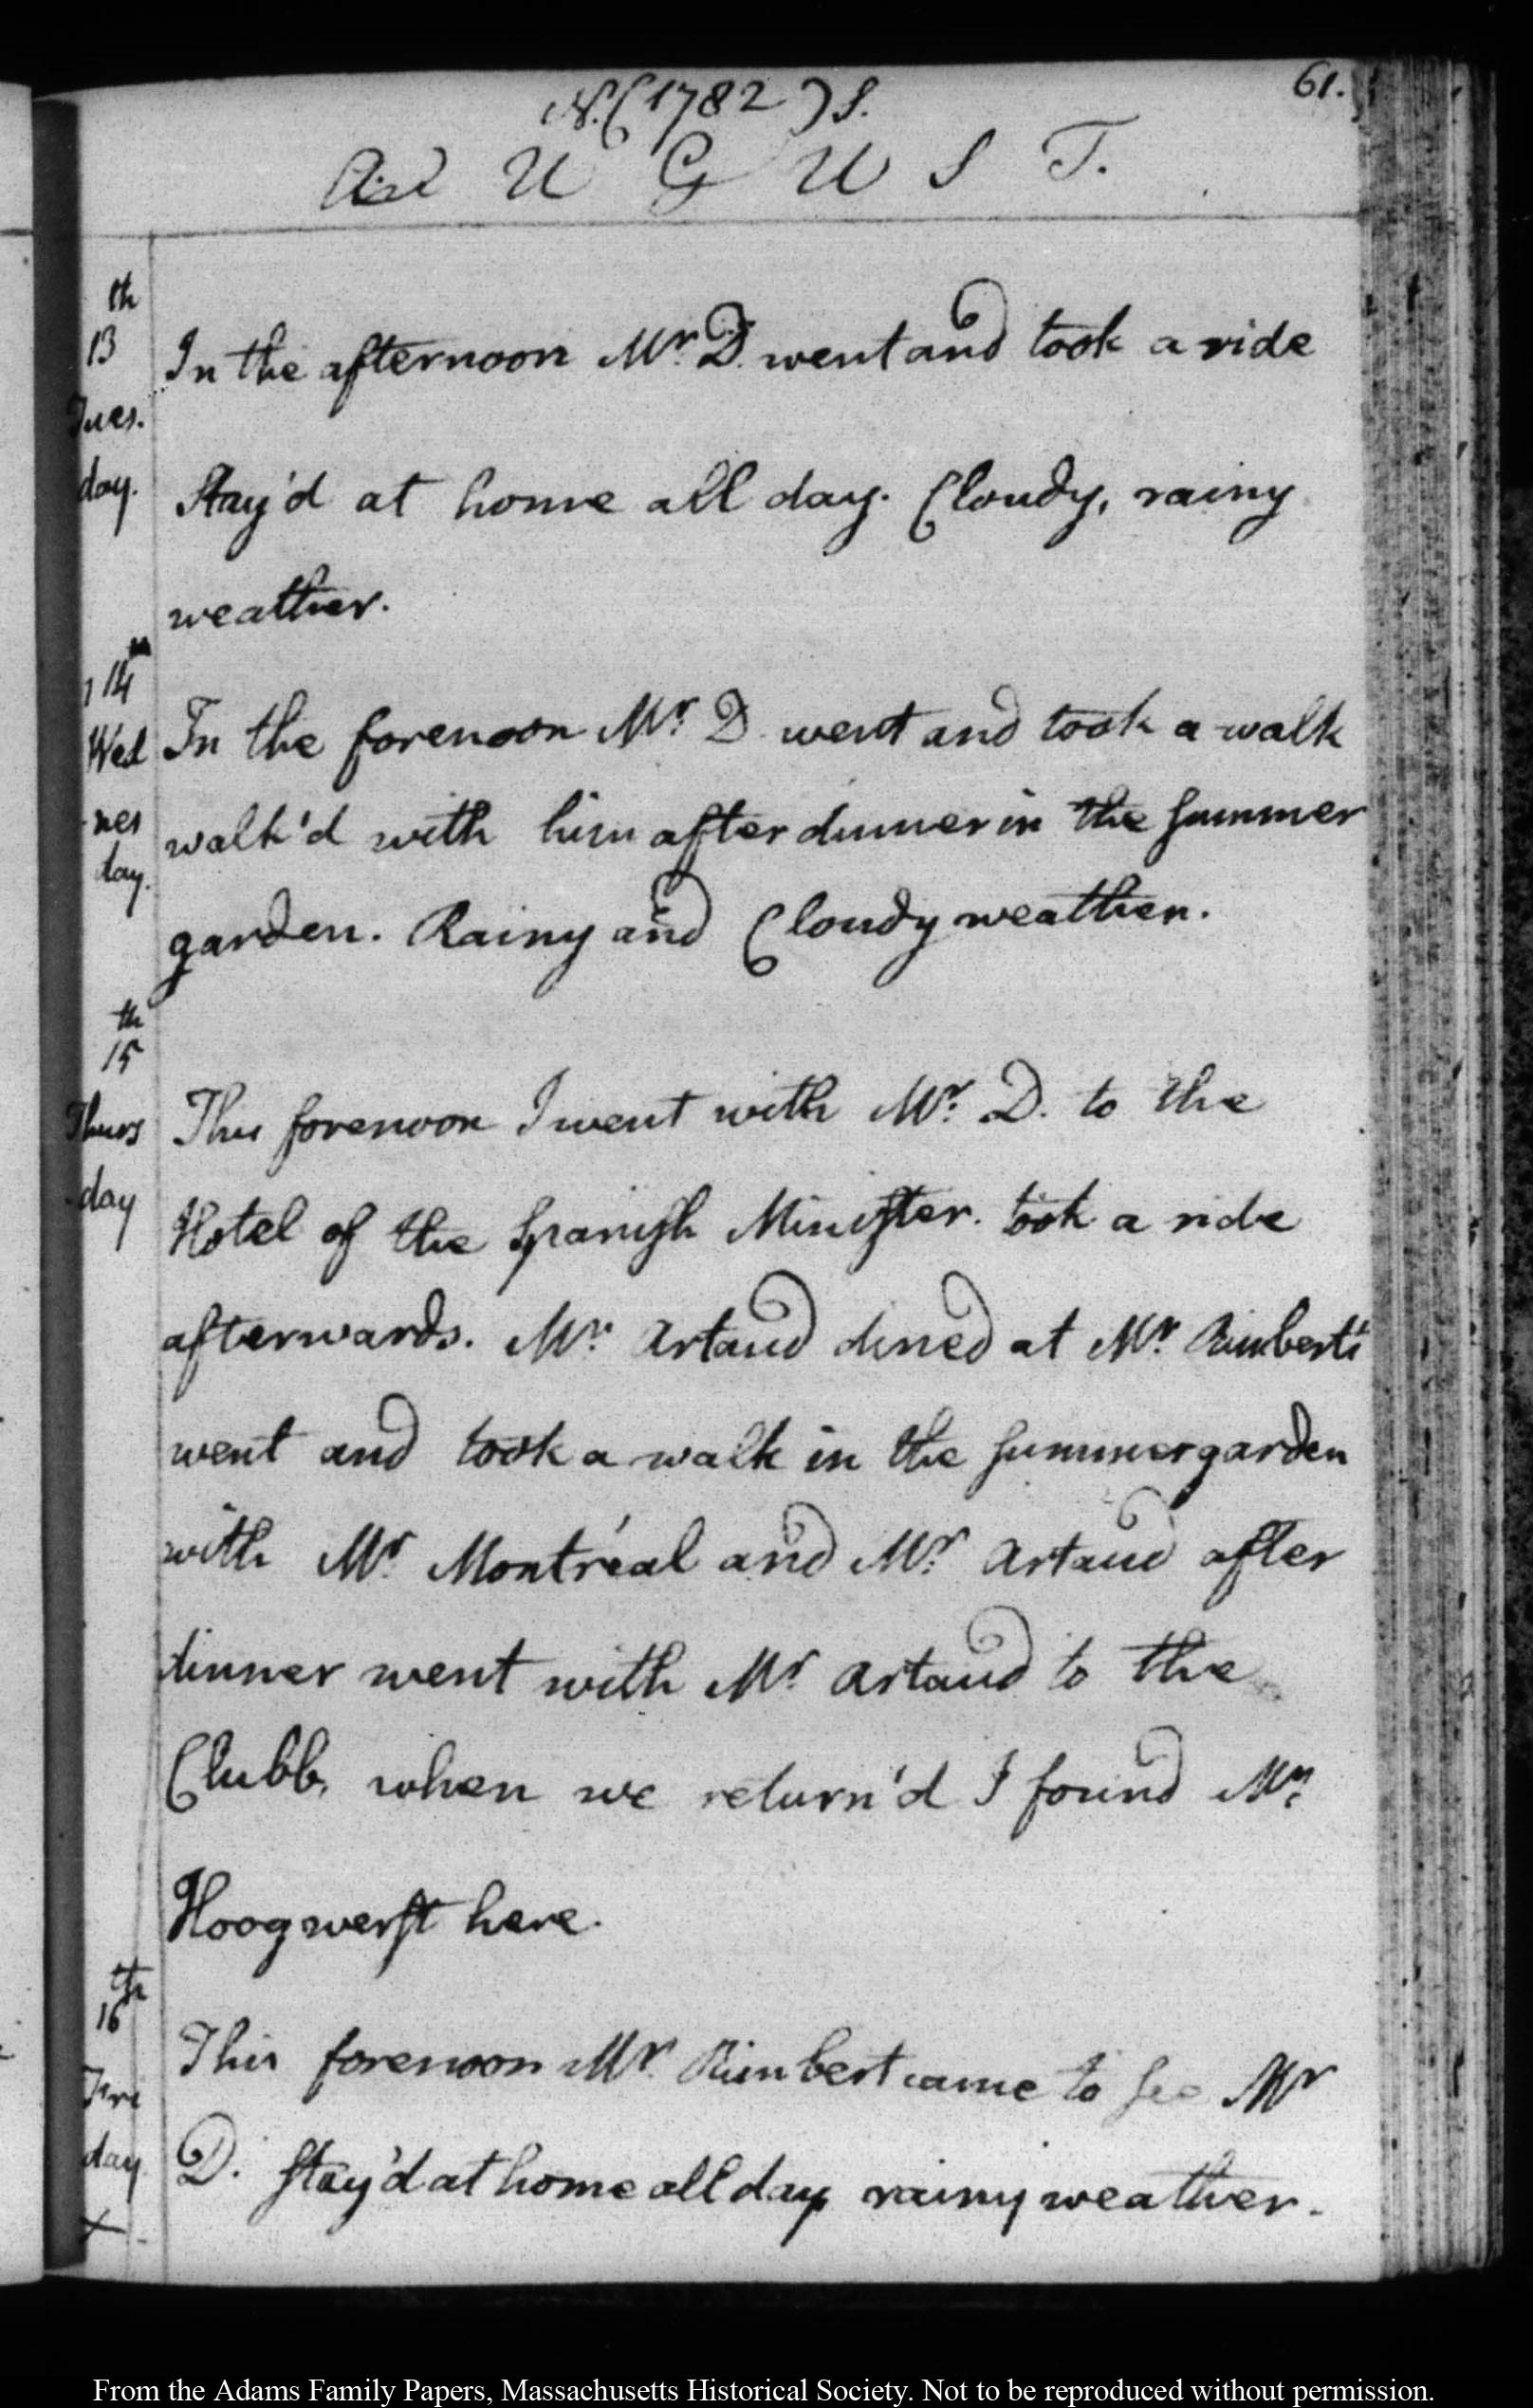 61.
N. (1782) S.
A U G U S T.
th
13
Tues.
day.
In the afternoon Mr. D. went and took a ride
Stay'd at home all day. Cloudy, rainy
weather.
14
Wed
nes
day.
In the forenoon Mr. D. went and took a walk
walk'd with him after dinner in the summer
garden. Rainy and Cloudy weather.
th
15
Thurs
day
This forenoon I went with Mr. D. to the
Hotel of the Spanish Minister. took a ride
afterwards. Mr. Artaud dined at Mr. Rimbert's
went and took a walk in the summergarden
with Mr. Montréal and Mr. Artaud after
dinner went with Mr. Artaud to the
Clubb, when we return'd I found Mr.
Hoogwerft here.
th
16
Fri
day
+
This forenoon Mr. Rimbert came to see Mr
D. stay'd at home all day rainy weather.
From the Adams Family Papers, Massachusetts Historical Society. Not to be reproduced without permission.